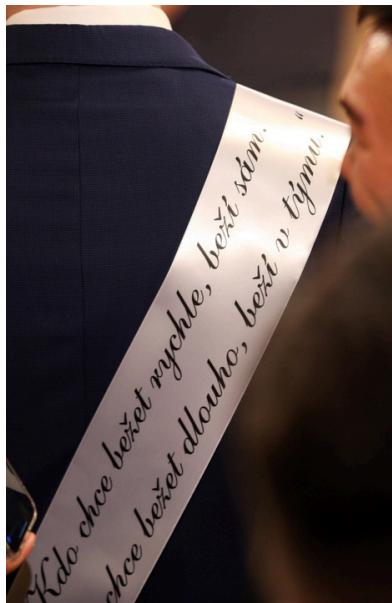 Kdo chce bežet rychle, beží sám.
chce bežet dlouho, beží v týmu. “